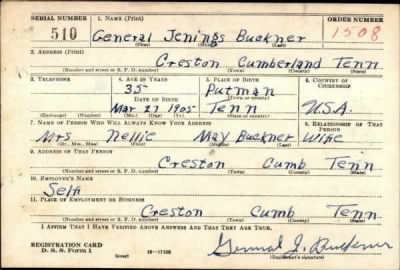 SERIAL NUMBER 1. NAME (Print) ORDER NUMBER
510 General Jenings Buckner 1508
(First) (Middle) (Last)
2. ADDRESS (Print)
Creston Cumberland Tenn
(Number and street or R. F. D. number) (Town) (County) (State)
3. TELEPHONE 4. AGE IN YEARS 5. PLACE OF BIRTH 6. COUNTRY OF CITIZENSHIP
35 Putman
DATE OF BIRTH (Town or county)
Mar 27 1905 Tenn U.S.A.
(Exchange) (Number) (Mo.) (Day) (Yr.) (State or country)
7. NAME OF PERSON WHO WILL ALWAYS KNOW YOUR ADDRESS 8. RELATIONSHIP OF THAT PERSON
Mrs Nellie May Buckner Wife
(Mr., Mrs., Miss) (First) (Middle) (Last)
9. ADDRESS OF THAT PERSON
Creston Cumb Tenn
(Number and street or R. F. D. number) (Town) (County) (State)
10. EMPLOYER'S NAME
Self
11. PLACE OF EMPLOYMENT OR BUSINESS
Creston Cumb Tenn
(Number and street or R. F. D. number) (Town) (County) (State)
I AFFIRM THAT I HAVE VERIFIED ABOVE ANSWERS AND THAT THEY ARE TRUE.
REGISTRATION CARD
D. S. S. Form 1 (over) General J. Buckner
(Registrant's signature)